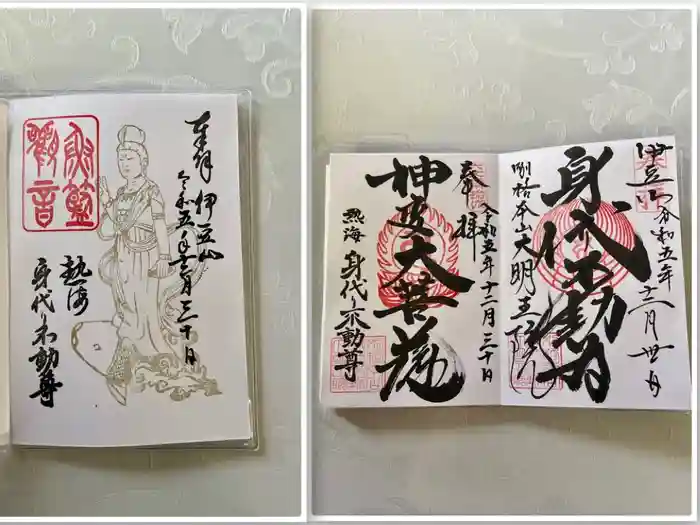 魚籃
觀音
奉拝 伊豆山
令和五年十二月三十日
熱海
身代り不動尊
奉拝
令和五年十二月三十日
神変大菩薩
熱海 身代り不動尊
伊豆山 令和五年十二月卅日
身代不動尊
別格本山大明王院